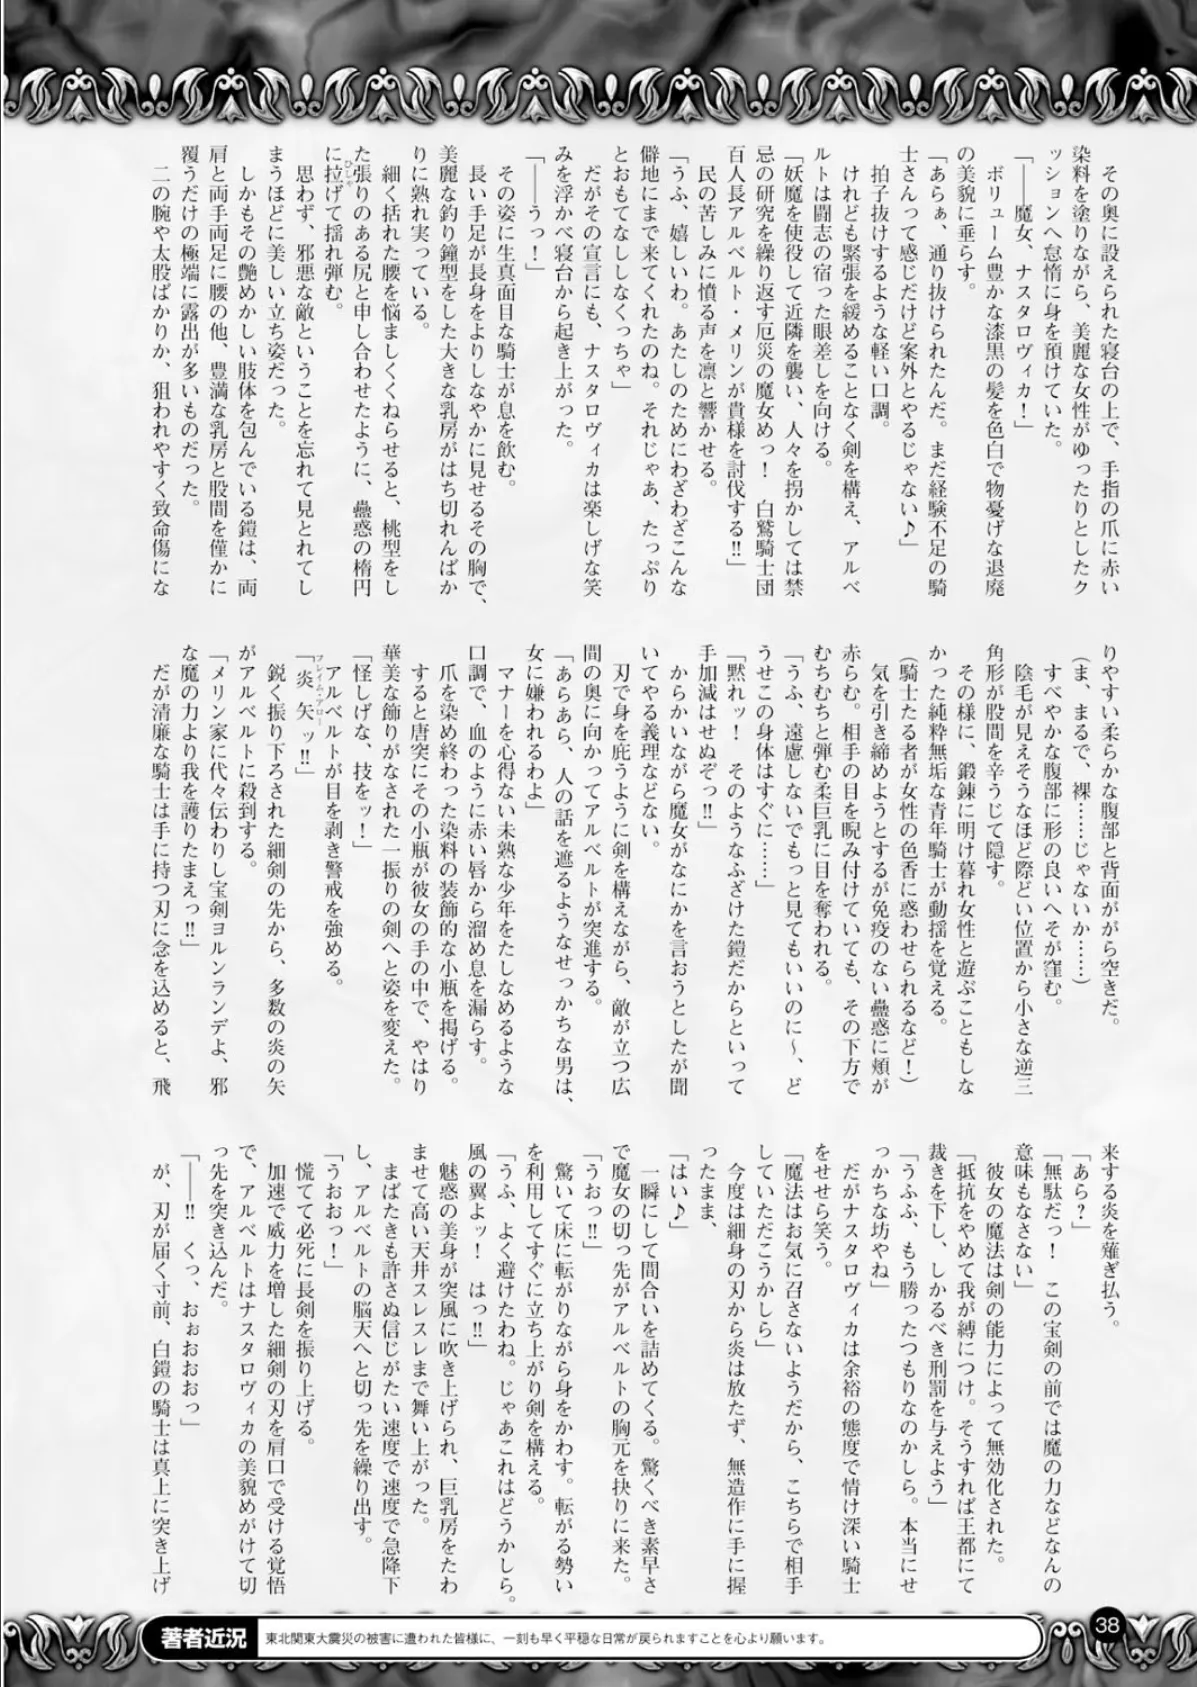 その奥に設えられた寝台の上で、手指の爪に赤い
染料を塗りながら、美麗な女性がゆったりとしたク
ッションへ怠惰に身を預けていた。
「――魔女、ナスタロヴィカ！」
ボリューム豊かな漆黒の髪を色白で物憂げな退廃
の美貌に垂らす。
「あらぁ、通り抜けられたんだ。まだ経験不足の騎
士さんって感じだけど案外とやるじゃない♪」
拍子抜けするような軽い口調。
けれども緊張を緩めることなく剣を構え、アルベ
ルトは闘志の宿った眼差しを向ける。
「妖魔を使役して近隣を襲い、人々を拐かしては禁
忌の研究を繰り返す厄災の魔女めっ！　白鷲騎士団
百人長アルベルト・メリンが貴様を討伐する!!」
民の苦しみに憤る声を凛と響かせる。
「うふ、嬉しいわ。あたしのためにわざわざこんな
僻地にまで来てくれたのね。それじゃあ、たっぷり
とおもてなししなくっちゃ」
だがその宣言にも、ナスタロヴィカは楽しげな笑
みを浮かべ寝台から起き上がった。
「――うっ！」
その姿に生真面目な騎士が息を飲む。
長い手足が長身をよりしなやかに見せるその胸で、
美麗な釣り鐘型をした大きな乳房がはち切れんばか
りに熟れ実っている。
細く括れた腰を悩ましくくねらせると、桃型をし
た張りのある尻と申し合わせたように、蠱惑の楕円
に拉げて揺れ弾む。
ひしゃ
思わず、邪悪な敵ということを忘れて見とれてし
まうほどに美しい立ち姿だった。
しかもその艶めかしい肢体を包んでいる鎧は、両
肩と両手両足に腰の他、豊満な乳房と股間を僅かに
覆うだけの極端に露出が多いものだった。
二の腕や太股ばかりか、狙われやすく致命傷にな
りやすい柔らかな腹部と背面ががら空きだ。
（ま、まるで、裸……じゃないか……）
すべやかな腹部に形の良いへそが窪む。
陰毛が見えそうなほど際どい位置から小さな逆三
角形が股間を辛うじて隠す。
その様に、鍛錬に明け暮れ女性と遊ぶこともしな
かった純粋無垢な青年騎士が動揺を覚える。
（騎士たる者が女性の色香に惑わせられるなど！）
気を引き締めようとするが免疫のない蠱惑に頬が
赤らむ。相手の目を睨み付けていても、その下方で
むちむちと弾む柔巨乳に目を奪われる。
「うふ、遠慮しないでもっと見てもいいのに～、ど
うせこの身体はすぐに……」
「黙れッ！　そのようなふざけた鎧だからといって
手加減はせぬぞっ!!」
からかいながら魔女がなにかを言おうとしたが聞
いてやる義理などない。
刃で身を庇うように剣を構えながら、敵が立つ広
間の奥に向かってアルベルトが突進する。
「あらあら、人の話を遮るようなせっかちな男は、
女に嫌われるわよ」
マナーを心得ない未熟な少年をたしなめるような
口調で、血のように赤い唇から溜め息を漏らす。
爪を染め終わった染料の装飾的な小瓶を掲げる。
すると唐突にその小瓶が彼女の手の中で、やはり
華美な飾りがなされた一振りの剣へと姿を変えた。
「怪しげな、技をッ！」
アルベルトが目を剥き警戒を強める。
「炎矢ッ!!」
フレイム・アロー
鋭く振り下ろされた細剣の先から、多数の炎の矢
がアルベルトに殺到する。
「メリン家に代々伝わりし宝剣ヨルンランデよ、邪
な魔の力より我を護りたまえっ!!」
だが清廉な騎士は手に持つ刃に念を込めると、飛
来する炎を薙ぎ払う。
「あら？」
「無駄だっ！　この宝剣の前では魔の力などなんの
意味もなさない」
彼女の魔法は剣の能力によって無効化された。
「抵抗をやめて我が縛につけ。そうすれば王都にて
裁きを下し、しかるべき刑罰を与えよう」
「うふふ、もう勝ったつもりなのかしら。本当にせ
っかちな坊やね」
だがナスタロヴィカは余裕の態度で情け深い騎士
をせせら笑う。
「魔法はお気に召さないようだから、こちらで相手
していただこうかしら」
今度は細身の刃から炎は放たず、無造作に手に握
ったまま、
「はい♪」
一瞬にして間合いを詰めてくる。驚くべき素早さ
で魔女の切っ先がアルベルトの胸元を抉りに来た。
「うおっ!!」
驚いて床に転がりながら身をかわす。転がる勢い
を利用してすぐに立ち上がり剣を構える。
「うふ、よく避けたわね。じゃあこれはどうかしら。
風の翼よッ！　はっ!!」
魅惑の美身が突風に吹き上げられ、巨乳房をたわ
ませて高い天井スレスレまで舞い上がった。
まばたきも許さぬ信じがたい速度で速度で急降下
し、アルベルトの脳天へと切っ先を繰り出す。
「うおおっ！」
慌てて必死に長剣を振り上げる。
加速で威力を増した細剣の刃を肩口で受ける覚悟
で、アルベルトはナスタロヴィカの美貌めがけて切
っ先を突き込んだ。
「――!!　くっ、おぉおおおっ」
が、刃が届く寸前、白鎧の騎士は真上に突き上げ
38
著者近況
東北関東大震災の被害に遭われた皆様に、一刻も早く平穏な日常が戻られますことを心より願います。